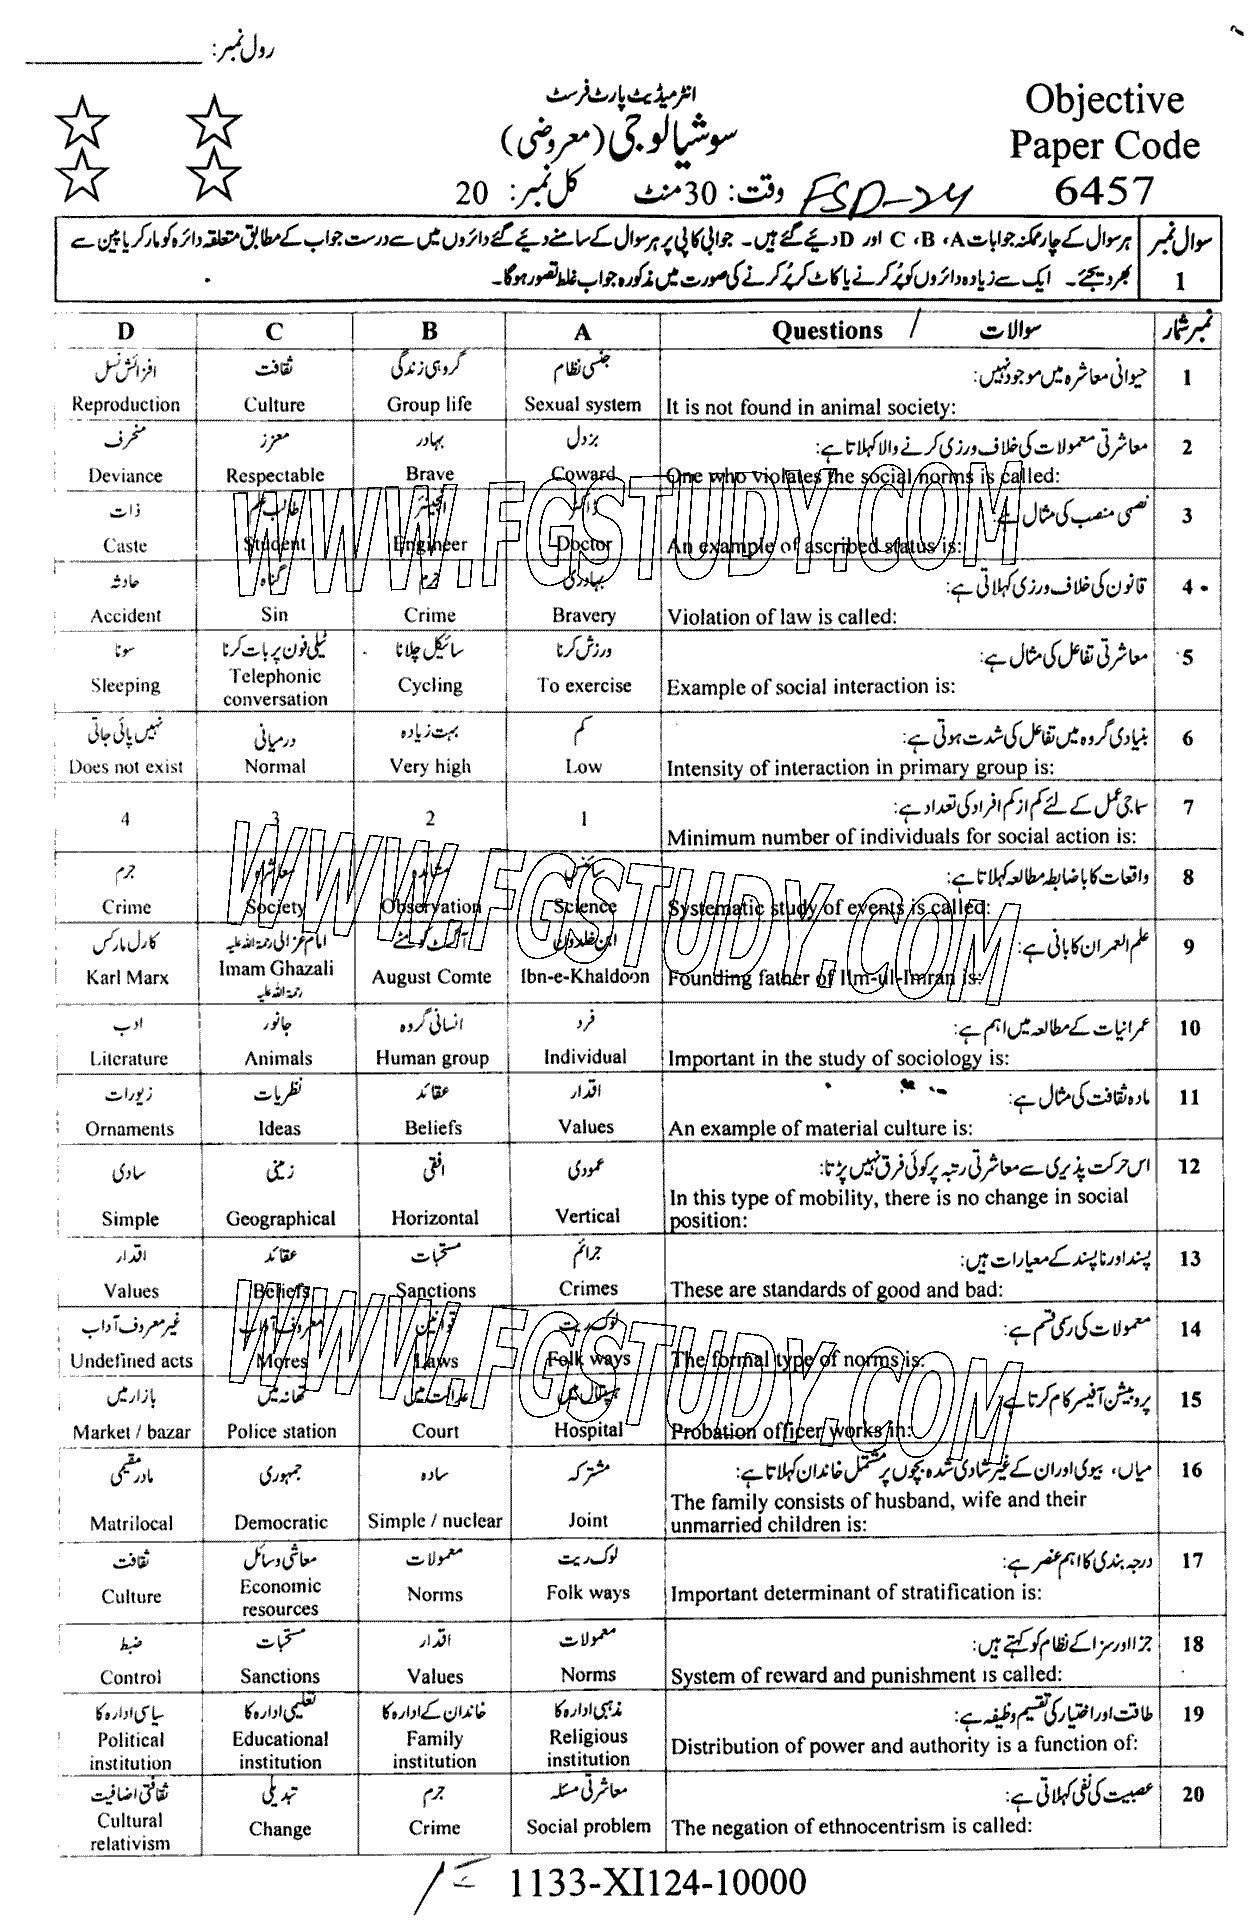 رول نمبر: ___________
انٹرمیڈیٹ پارٹ فرسٹ
Objective
سوشیالوجی (معروضی)
Paper Code
وقت: 30 منٹ کل نمبر: 20
FSD-24
6457
سوال نمبر 1
ہر سوال کے چار ممکنہ جوابات A، B، C اور D دیئے گئے ہیں۔ جوابی کاپی پر ہر سوال کے سامنے دیئے گئے دائروں میں سے درست جواب کے مطابق متعلقہ دائرہ کو مارکر یا پین سے
بھر دیجئے۔ ایک سے زیادہ دائروں کو پُر کرنے یا کاٹ کر پُر کرنے کی صورت میں مذکورہ جواب غلط تصور ہوگا۔
D C B A Questions / سوالات نمبر شمار
افزائش نسل ثقافت گروہی زندگی جنسی نظام حیوانی معاشرہ میں موجود نہیں: 1
Reproduction Culture Group life Sexual system It is not found in animal society:
منحرف معزز بہادر بزدل معاشرتی معمولات کی خلاف ورزی کرنے والا کہلاتا ہے: 2
Deviance Respectable Brave Coward One who violates the social norms is called:
ذات طالب علم انجینئر ڈاکٹر نصبی منصب کی مثال ہے: 3
Caste Student Engineer Doctor An example of ascribed status is:
حادثہ گناہ جرم بہادری قانون کی خلاف ورزی کہلاتی ہے: 4
Accident Sin Crime Bravery Violation of law is called:
سونا ٹیلی فون پر بات کرنا سائیکل چلانا ورزش کرنا معاشرتی تفاعل کی مثال ہے: 5
Sleeping Telephonic conversation Cycling To exercise Example of social interaction is:
نہیں پائی جاتی درمیانی بہت زیادہ کم بنیادی گروہ میں تفاعل کی شدت ہوتی ہے: 6
Does not exist Normal Very high Low Intensity of interaction in primary group is:
4 3 2 1 سماجی عمل کے لئے کم از کم افراد کی تعداد ہے: 7
Minimum number of individuals for social action is:
جرم معاشرہ مشاہدہ سائنس واقعات کا باضابطہ مطالعہ کہلاتا ہے: 8
Crime Society Observation Science Systematic study of events is called:
کارل مارکس امام غزالی رحمۃ اللہ علیہ آگسٹ کومٹے ابن خلدون علم العمران کا بانی ہے: 9
Karl Marx Imam Ghazali رحمۃ اللہ علیہ August Comte Ibn-e-Khaldoon Founding father of Ilm-ul-Imran is:
ادب جانور انسانی گروہ فرد عمرانیات کے مطالعہ میں اہم ہے: 10
Literature Animals Human group Individual Important in the study of sociology is:
زیورات نظریات عقائد اقدار مادہ ثقافت کی مثال ہے: 11
Ornaments Ideas Beliefs Values An example of material culture is:
سادی زمینی افقی عمودی اس حرکت پذیری سے معاشرتی رتبہ پر کوئی فرق نہیں پڑتا: 12
Simple Geographical Horizontal Vertical In this type of mobility, there is no change in social position:
اقدار عقائد مستحبات جرائم پسند اور ناپسند کے معیارات ہیں: 13
Values Beliefs Sanctions Crimes These are standards of good and bad:
غیر معروف آداب معروف آداب قوانین لوک ریت معمولات کی رسمی قسم ہے: 14
Undefined acts Mores Laws Folk ways The formal type of norms is:
بازار میں تھانہ میں عدالت میں ہسپتال میں پروبیشن آفیسر کام کرتا ہے: 15
Market / bazar Police station Court Hospital Probation officer works in:
مادر مقیمی جمہوری سادہ مشترکہ میاں، بیوی اور ان کے غیر شادی شدہ بچوں پر مشتمل خاندان کہلاتا ہے: 16
Matrilocal Democratic Simple / nuclear Joint The family consists of husband, wife and their unmarried children is:
ثقافت معاشی وسائل معمولات لوک ریت درجہ بندی کا اہم عنصر ہے: 17
Culture Economic resources Norms Folk ways Important determinant of stratification is:
ضبط مستحبات اقدار معمولات جزا اور سزا کے نظام کو کہتے ہیں: 18
Control Sanctions Values Norms System of reward and punishment is called:
سیاسی ادارہ کا تعلیمی ادارہ کا خاندان کے ادارہ کا مذہبی ادارہ کا طاقت اور اختیار کی تقسیم وظیفہ ہے: 19
Political institution Educational institution Family institution Religious institution Distribution of power and authority is a function of:
ثقافتی اضافیت تبدیلی جرم معاشرتی مسئلہ عصبیت کی نفی کہلاتی ہے: 20
Cultural relativism Change Crime Social problem The negation of ethnocentrism is called:
1133-XI124-10000
WWW.FGSTUDY.COM
WWW.FGSTUDY.COM
WWW.FGSTUDY.COM